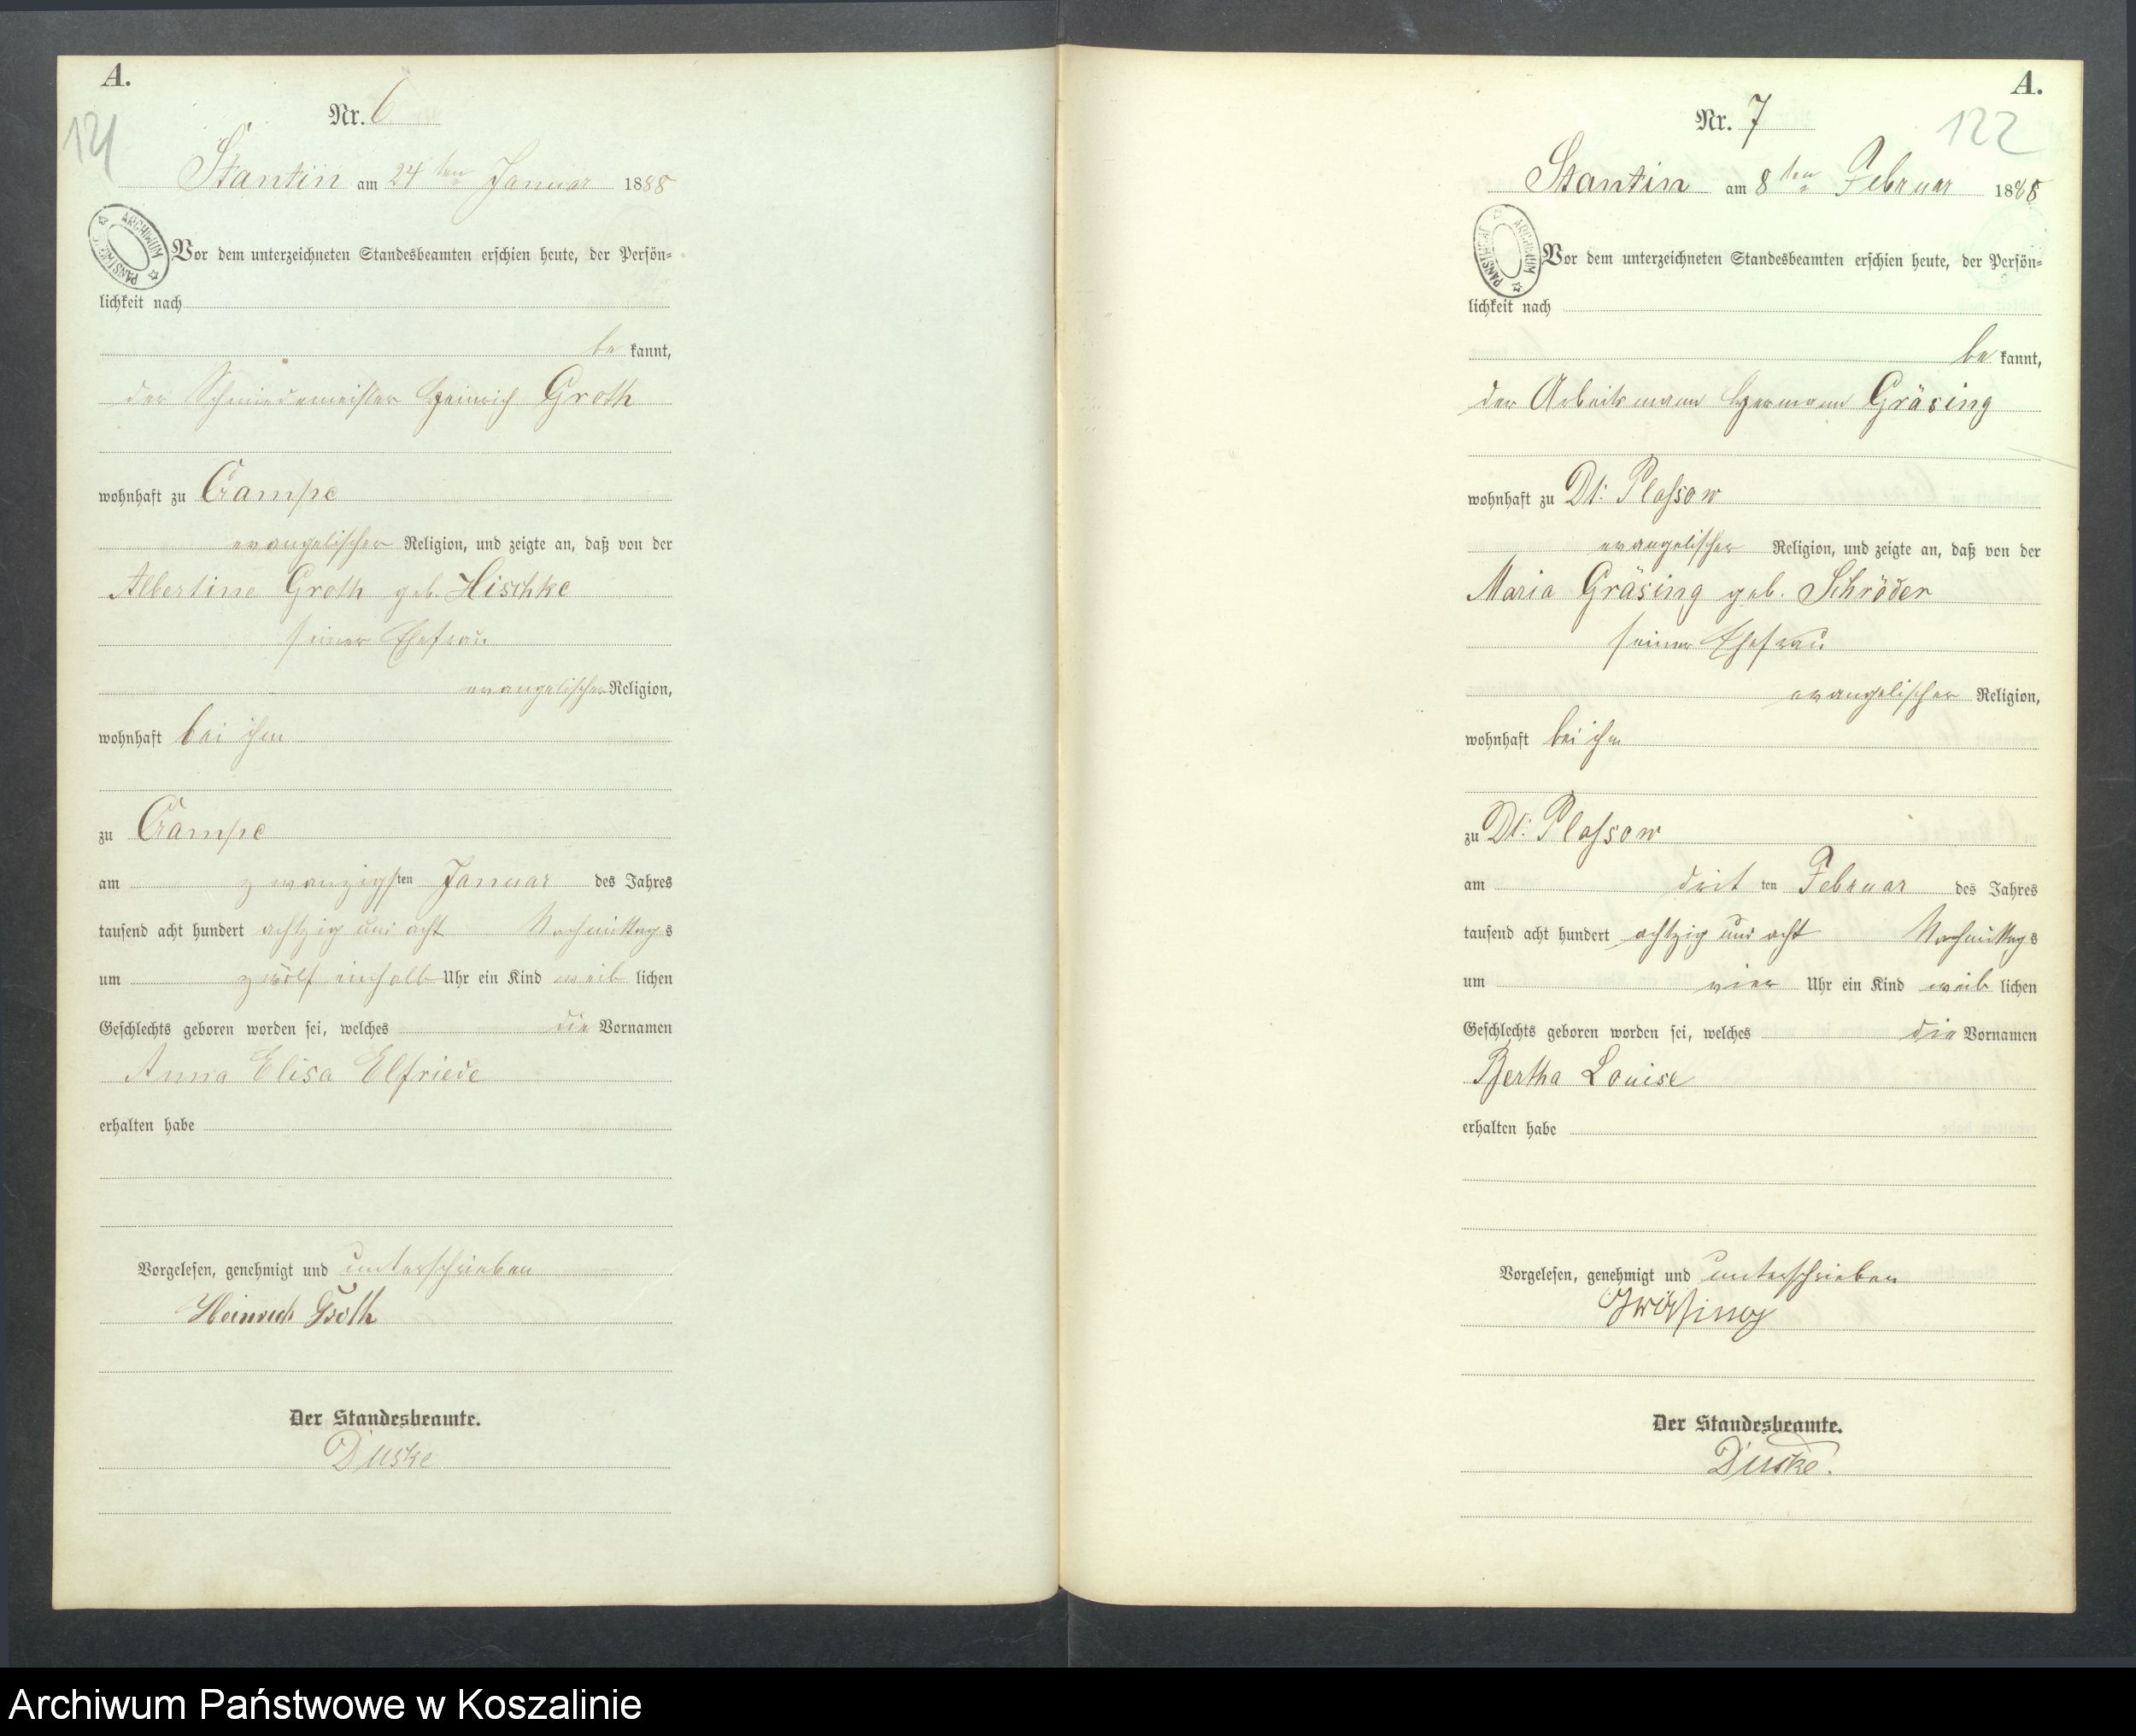 A.
121
Nr. 6
Stantin am 24ten Januar 1888
ARCHIWUM PAŃSTWOWE
Vor dem unterzeichneten Standesbeamten erschien heute, der Persön-
lichkeit nach
be kannt,
der Schmiedemeister Heinrich Groth
wohnhaft zu Crampe
evangelischer Religion, und zeigte an, daß von der
Albertine Groth geb. Hischke
seiner Ehefrau
evangelischer Religion,
wohnhaft bei ihm
zu Crampe
am zwanzigsten Januar des Jahres
tausend acht hundert achtzig und acht Nachmittags
um zwölf einhalb Uhr ein Kind weib lichen
Geschlechts geboren worden sei, welches die Vornamen
Anna Elisa Elfriede
erhalten habe
Vorgelesen, genehmigt und unterschrieben
Heinrich Groth
Der Standesbeamte.
Duske
A.
122
Nr. 7
Stantin am 8ten Februar 1888
ARCHIWUM PAŃSTWOWE
Vor dem unterzeichneten Standesbeamten erschien heute, der Persön-
lichkeit nach
be kannt,
der Arbeitsmann Hermann Gräsing
wohnhaft zu Dt: Plassow
evangelischer Religion, und zeigte an, daß von der
Maria Gräsing geb. Schröder
seiner Ehefrau
evangelischer Religion,
wohnhaft bei ihm
zu Dt: Plassow
am drit ten Februar des Jahres
tausend acht hundert achtzig und acht Nachmittags
um vier Uhr ein Kind weib lichen
Geschlechts geboren worden sei, welches die Vornamen
Bertha Louise
erhalten habe
Vorgelesen, genehmigt und unterschrieben
Gräsing
Der Standesbeamte.
Duske.
Archiwum Państwowe w Koszalinie